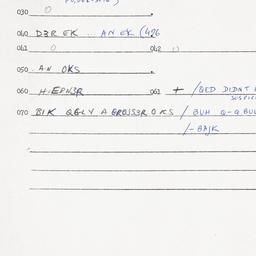 030 0
040 D3R EK ... AN EK (426
041 0 042 0
050 AN OKS
060 HIEPN3R 061 + / BED DIDNT
070 BIK QGLV A ERBJS3R OKS / BUH Q-Q BUL
/- BAJK